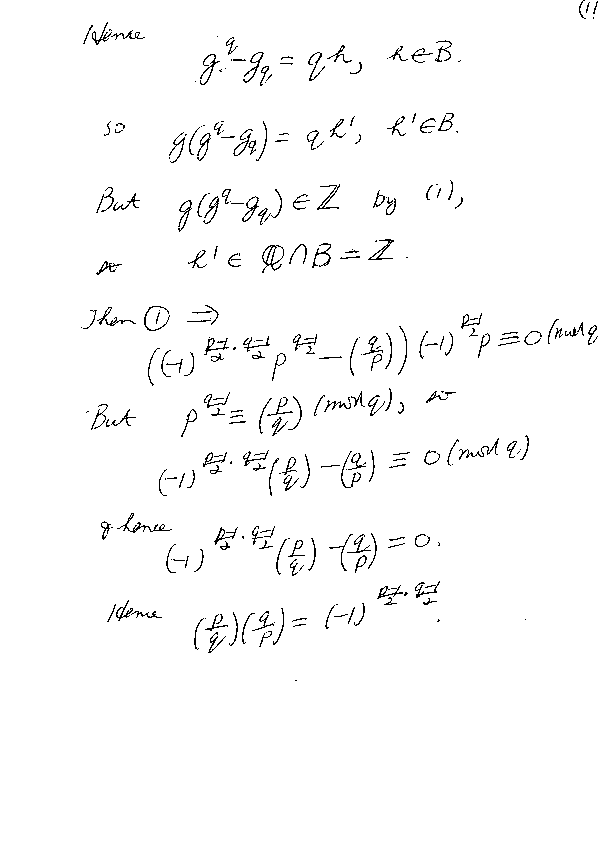 (11
Hence
g^q - g_q = qh, h ∈ B.
so g(g^q - g_q) = qh', h' ∈ B.
But g(g^q - g_q) ∈ ℤ by (1),
so h' ∈ ℚ ∩ B = ℤ.
Then ① ⇒
((-1)^{\frac{p-1}{2}·\frac{q-1}{2}} p^{\frac{q-1}{2}} - (\frac{q}{p})) (-1)^{\frac{p-1}{2}} p ≡ 0 (mod q
But p^{\frac{q-1}{2}} ≡ (\frac{p}{q}) (mod q), so
(-1)^{\frac{p-1}{2}·\frac{q-1}{2}} (\frac{p}{q}) - (\frac{q}{p}) ≡ 0 (mod q)
& hence
(-1)^{\frac{p-1}{2}·\frac{q-1}{2}} (\frac{p}{q}) - (\frac{q}{p}) = 0.
Hence (\frac{p}{q})(\frac{q}{p}) = (-1)^{\frac{p-1}{2}·\frac{q-1}{2}}.